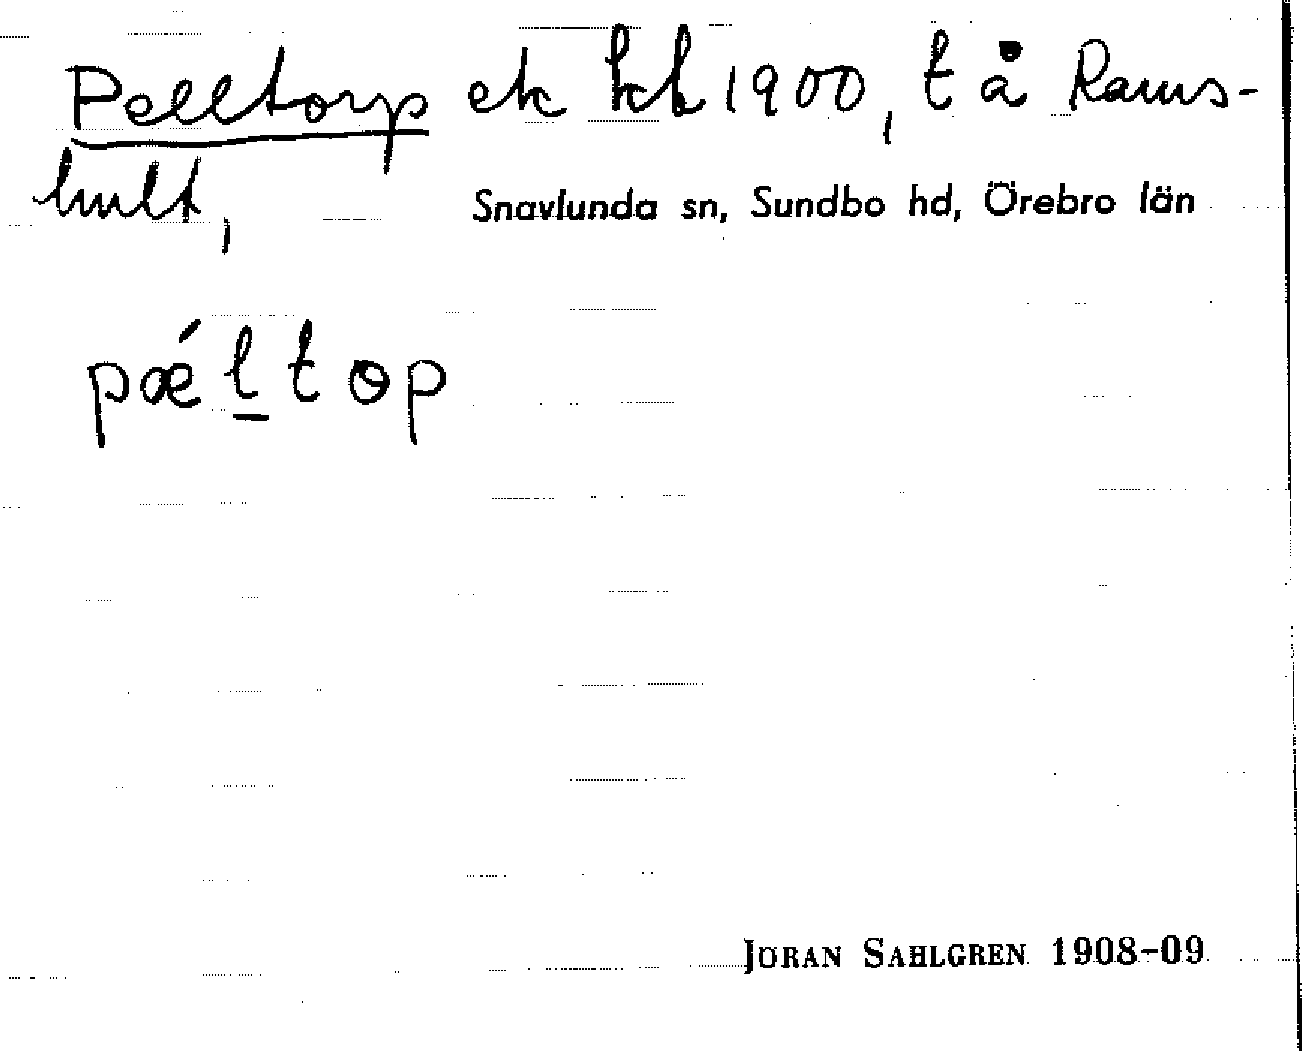 Pelltorp ek kh 1900, t å Rams-
hult,
Snavlunda sn, Sundbo hd, Örebro län
pǽl̲top
JÖRAN SAHLGREN 1908-09